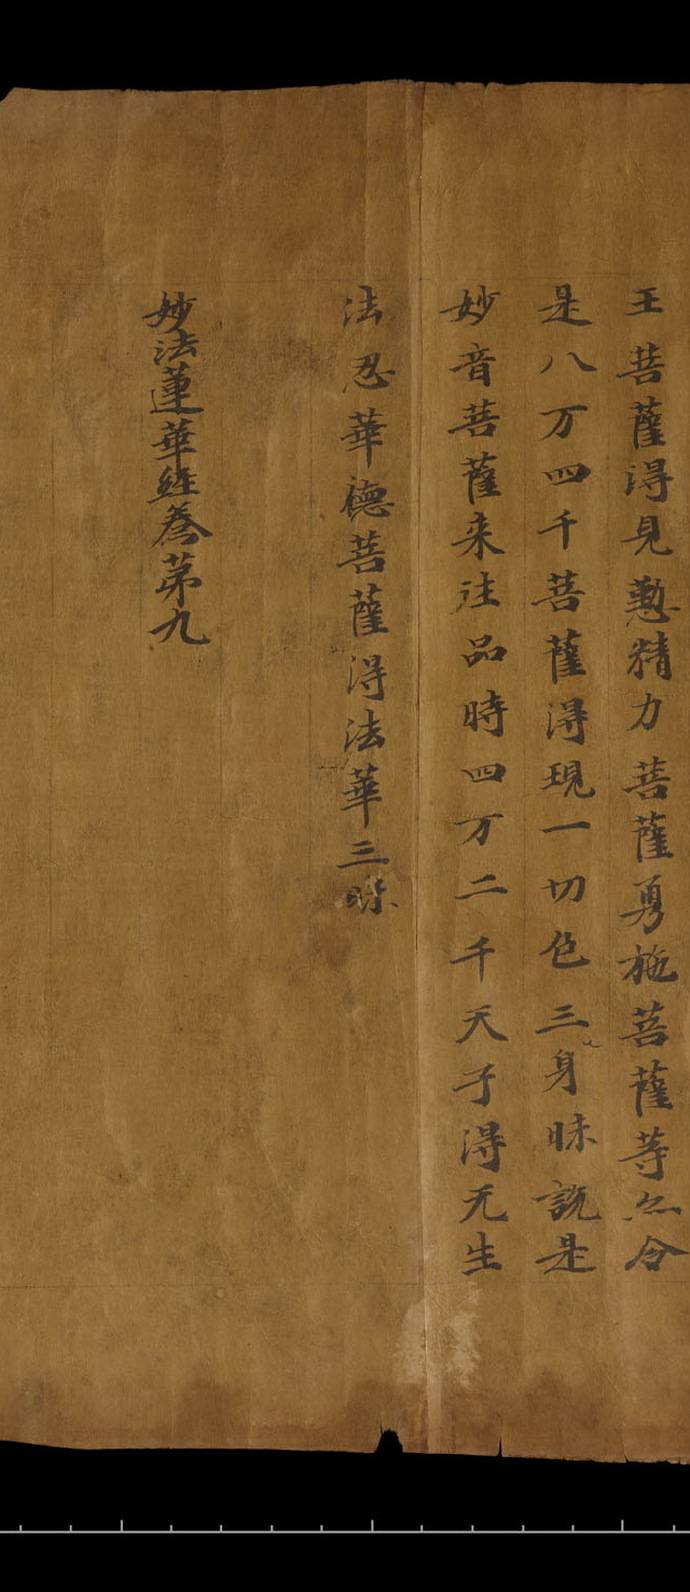 王菩薩得見懃精力菩薩勇施菩薩等亦令
是八万四千菩薩得現一切色三身昧說是
妙音菩薩来往品時四万二千天子得无生
法忍華德菩薩得法華三昧
妙法蓮華經卷第九